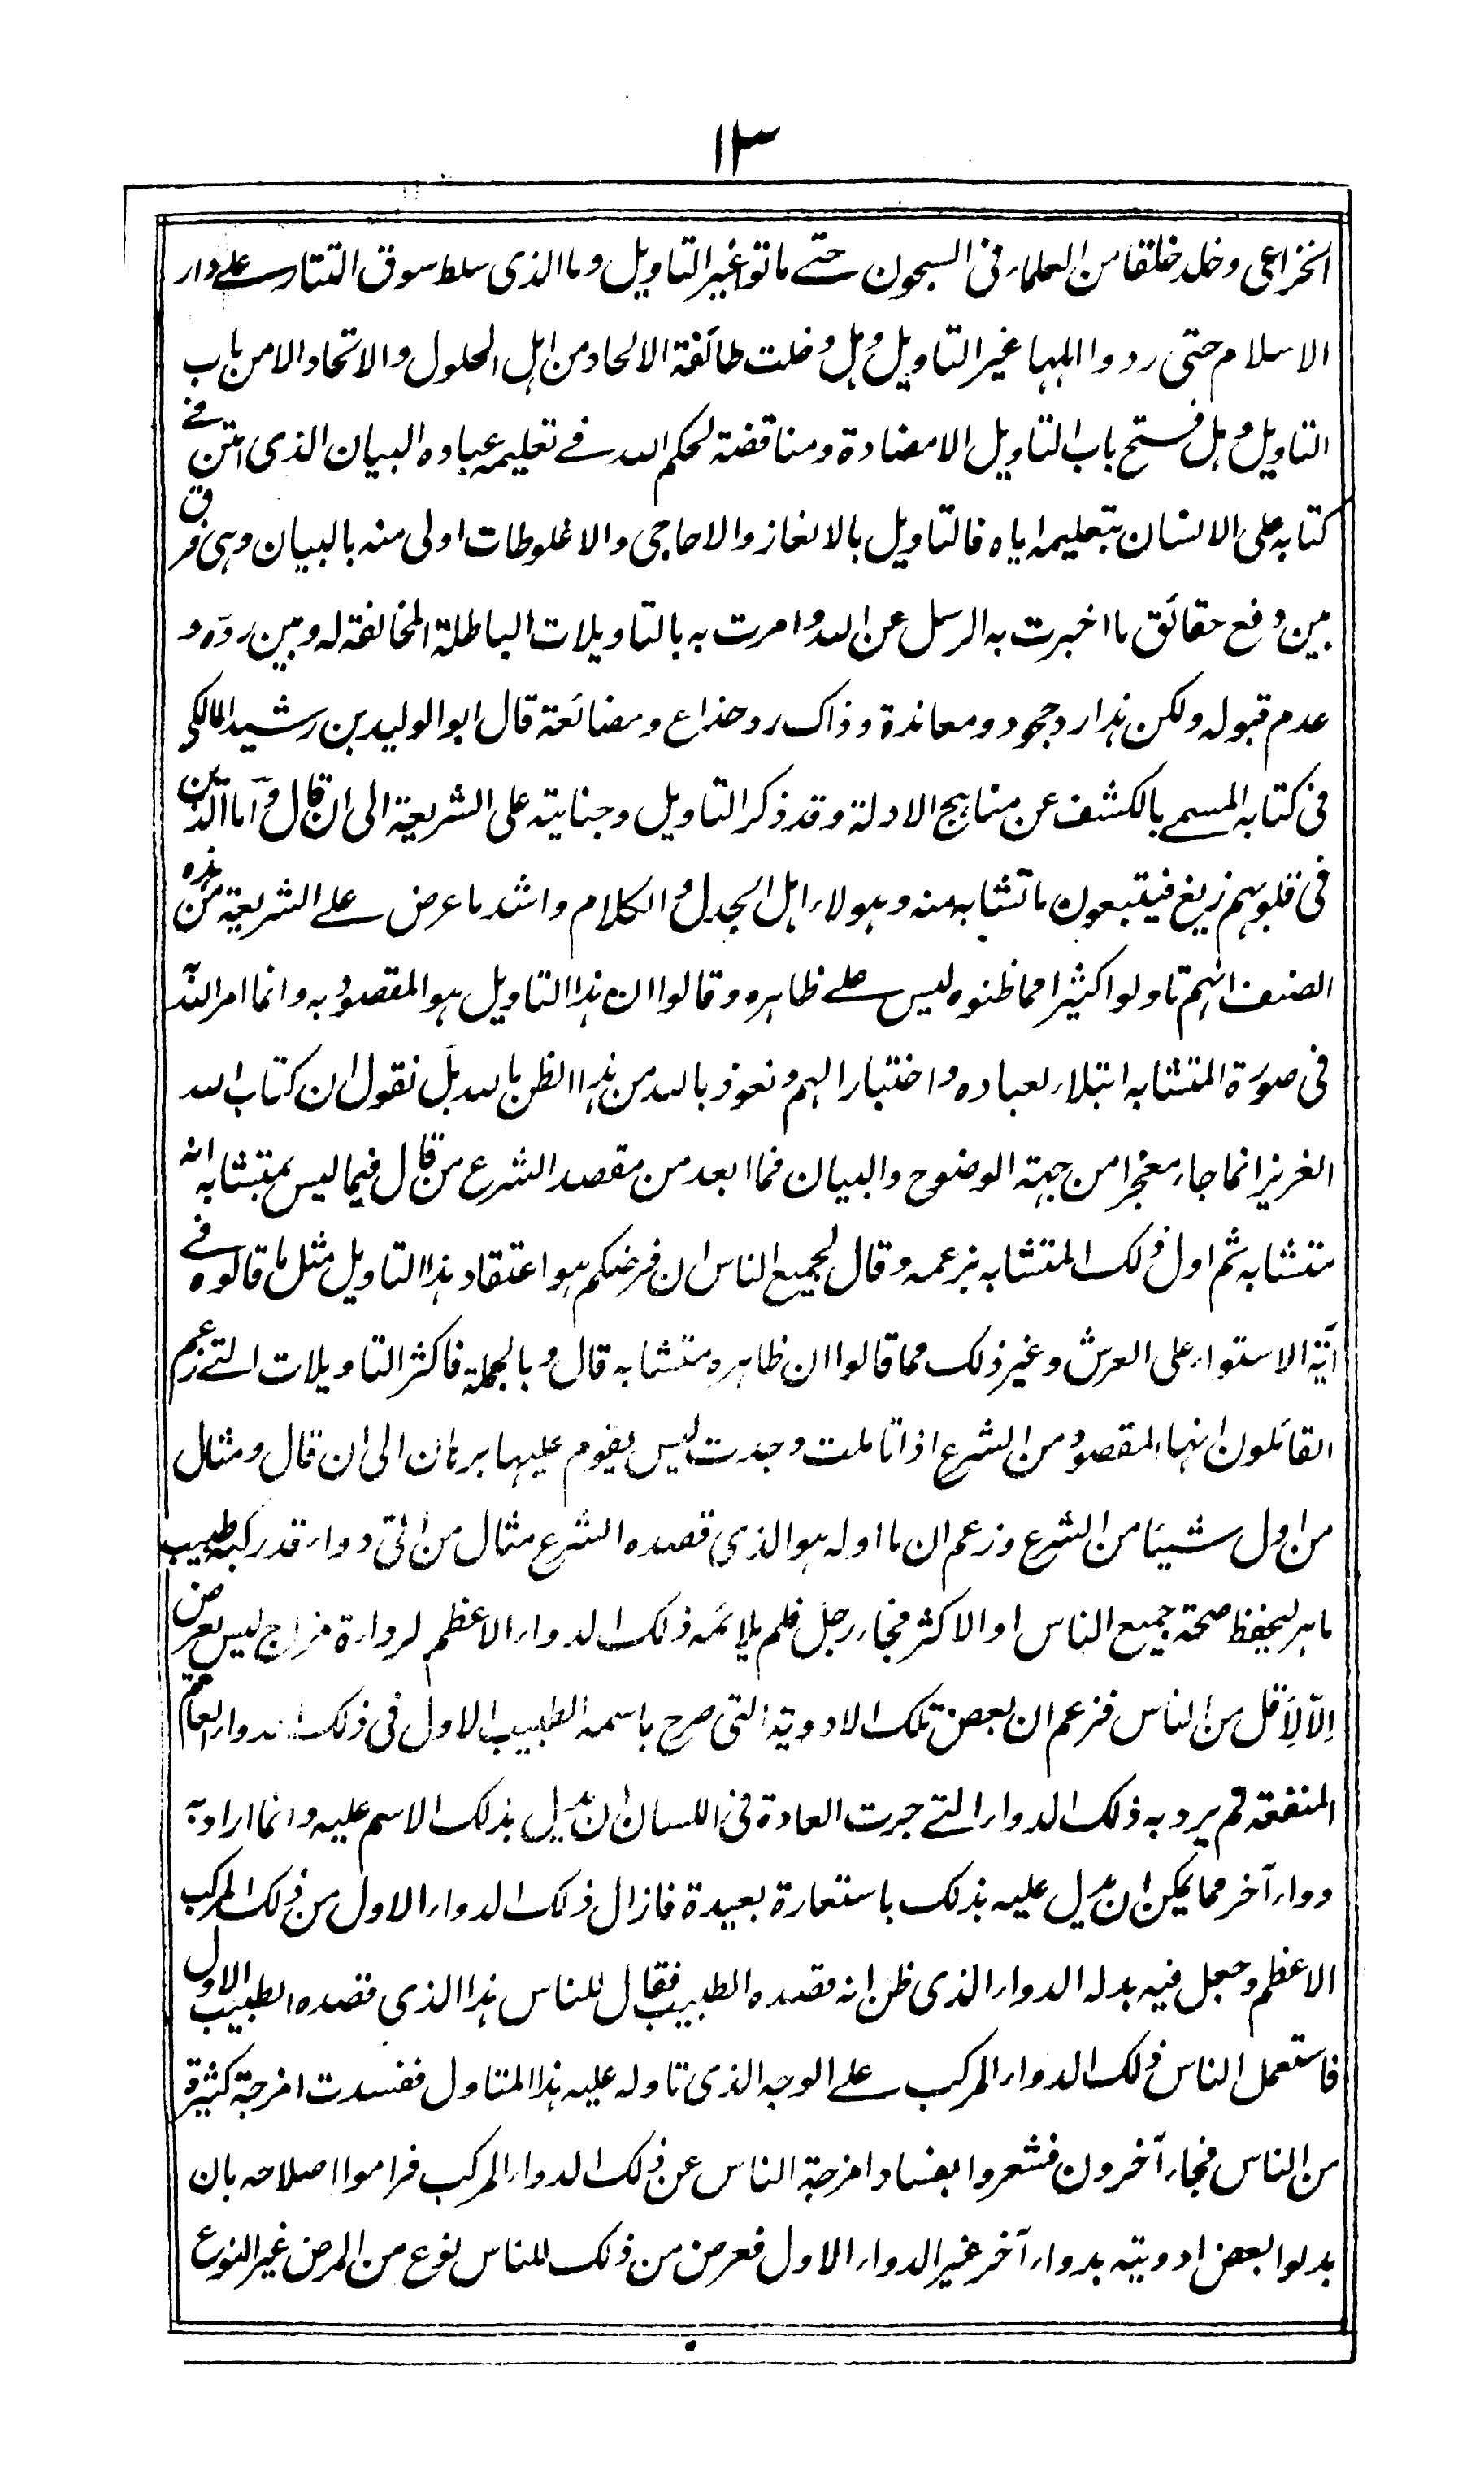 ١٣
الخزاعی وخلد خلقا من العلماء فی السجون حتے ماتوا غیر التاویل وما الذی سلط سوق التتار علے دار
الاسلام حتی ردوا اہلہا غیر التاویل وہل دخلت طائفة الالحاد من اہل الحلول والاتحاد الا من باب
التاویل وہل فتح باب التاویل الا مضادة ومناقضة لحکم اللہ فے تعلیمہ عبادہ البیان الذی امتن فے
کتابہ علی الانسان بتعلیمہ ایاہ فالتاویل بالالغاز والاحاجی والاغلوطات اولی منہ بالبیان وہی فرق
بین دفع حقائق ما اخبرت بہ الرسل عن اللہ وامرت بہ بالتاویلات الباطلة المخالفة لہ وبین ردّہ و
عدم قبولہ ولکن ہذا رد جحود ومعاندة وذاک رد خداع ومصانعة قال ابو الولید بن رشید المالکی
فی کتابہ المسمے بالکشف عن مناہج الادلة وقد ذکر التاویل وجنایتہ علی الشریعة الی ان قال وآما الذین
فی قلوبہم زیغ فیتبعون ما تشابہ منہ وہولاء اہل الجدل والکلام واشد ما عرض علے الشریعة من ہذہ
الصنف انہم تاولوا کثیرا مما ظنوہ لیس علے ظاہرہ وقالوا ان ہذا التاویل ہو المقصود بہ وانما امر اللہ
فی صورة المتشابہ ابتلاء لعبادہ واختبارا لہم ونعوذ باللہ من ہذا الظن باللہ بل نقول ان کتاب اللہ
العزیز انما جاء معجزا من جہة الوضوح والبیان فما ابعد من مقصد الشرع من قال فیما لیس بمتشابہ انہ
متشابہ ثم اول ذلک المتشابہ بزعمہ وقال لجمیع الناس ان فرضکم ہو اعتقاد ہذا التاویل مثل ما قالوہ فے
آیة الاستواء علی العرش وغیر ذلک مما قالوا ان ظاہرہ متشابہ قال وبالجملة فاکثر التاویلات التے زعم
القائلون انہا المقصود من الشرع اذا تاملت وجدت لیس یقوم علیہا برہان الی ان قال ومثال
من اول شیئا من الشرع وزعم ان ما اولہ ہو الذی قصدہ الشرع مثال من اتی دواء قد رکبہ طبیب
ماہر لیحفظ صحة جمیع الناس او الاکثر فجاء رجل فلم یلائمہ ذلک الدواء الاعظم لرداءة مزاج لیس یعرض
اِلّا لِاَقل من الناس فزعم ان بعض تلک الادویة التی صرح باسمہ الطبیب الاول فی ذلک الدواء العام
المنفعة لم یرد بہ ذلک الدواء التے جرت العادة فی اللسان ان یدل بذلک الاسم علیہ وانما اراد بہ
دواء آخر مما یمکن ان یدل علیہ بذلک باستعارة بعیدة فازال ذلک الدواء الاول من ذلک المرکب
الاعظم وجعل فیہ بدلہ الدواء الذی ظن انہ قصدہ الطبیب فقال للناس ہذا الذی قصدہ الطبیب الاول
فاستعمل الناس ذلک الدواء المرکب علے الوجہ الذی تاولہ علیہ ہذا المتاول ففسدت امزجة کثیرة
من الناس فجاء آخرون فشعروا بفساد امزجة الناس عن ذلک الدواء المرکب فراموا اصلاحہ بان
بدلوا بعض ادویتہ بدواء آخر غیر الدواء الاول فعرض من ذلک للناس نوع من المرض غیر النوع